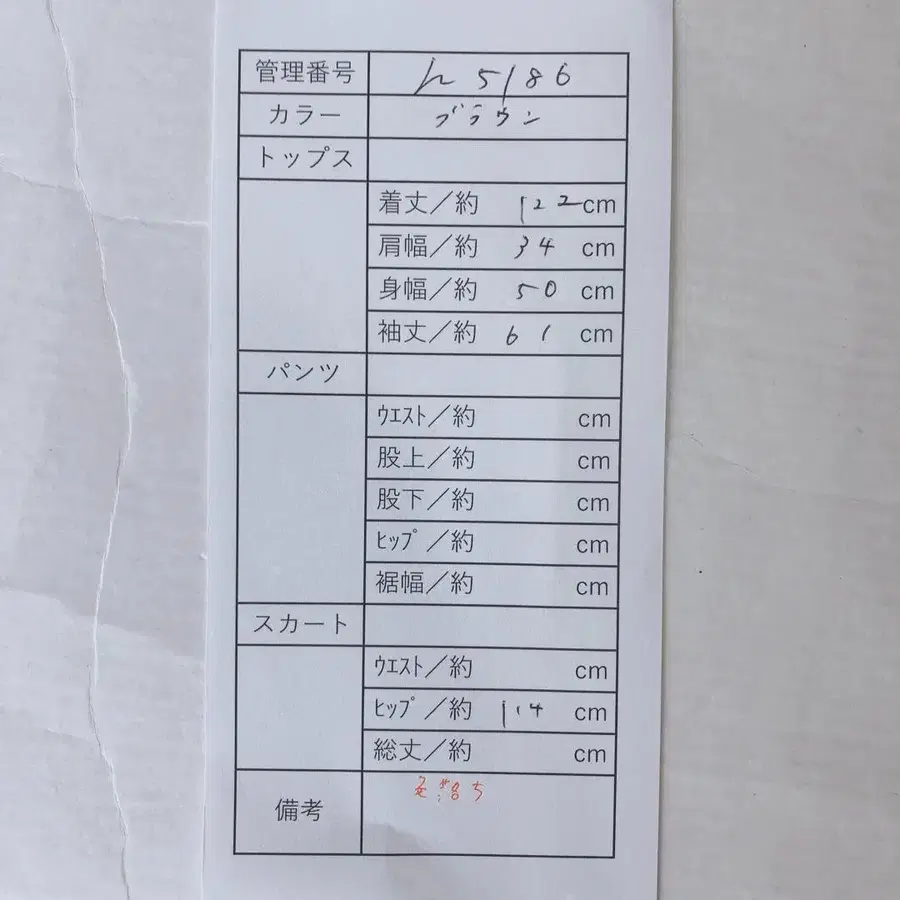 管理番号 h 5186
カラー ブラウン
トップス
着丈／約 122cm
肩幅／約 34 cm
身幅／約 50 cm
袖丈／約 61 cm
パンツ
ｳｴｽﾄ／約 cm
股上／約 cm
股下／約 cm
ﾋｯﾌﾟ／約 cm
裾幅／約 cm
スカート
ｳｴｽﾄ／約 cm
ﾋｯﾌﾟ／約 114 cm
総丈／約 cm
備考 色落ち